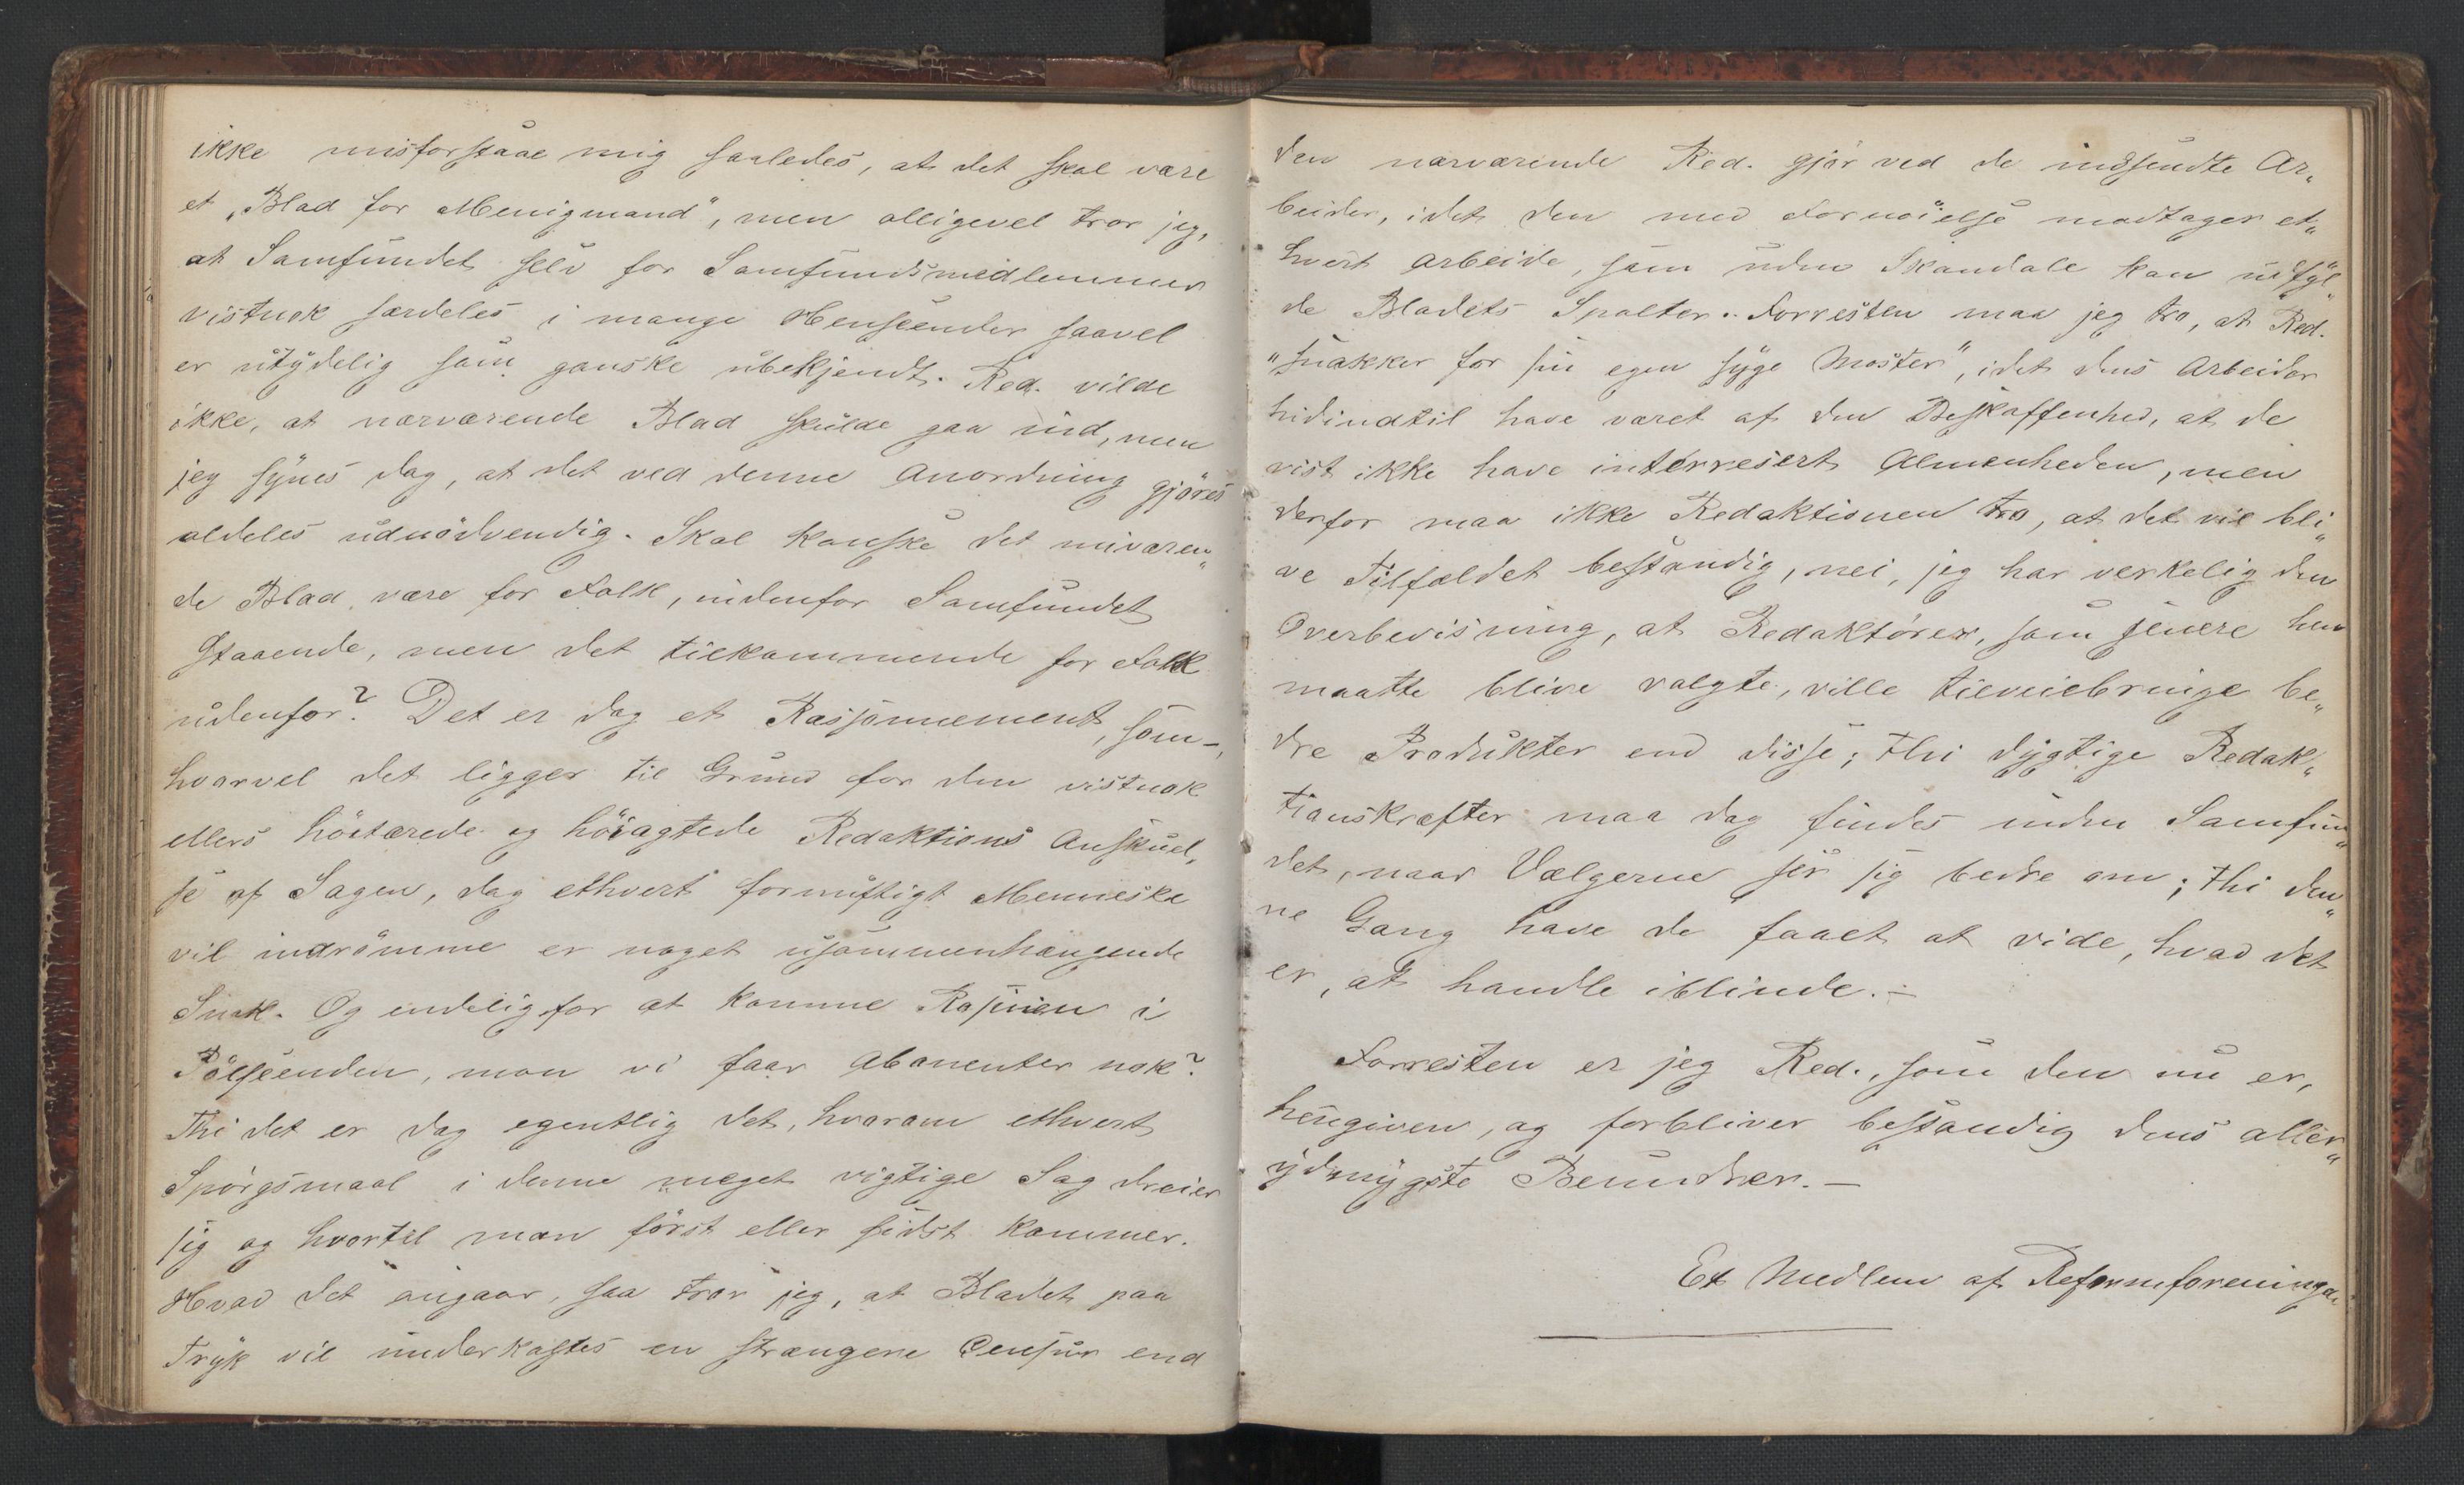 ikke misforstaae mig saaledes, at det skal være
et „Blad for Menigmand", men alligevel tror jeg,
at Samfundet selv for Samfundsmedlemmer
vistnok særdeles i mange Henseender saavel
er utydelig som ganske ubekjendt. Red. vilde
ikke, at nærværende Blad skulde gaa ind, men
jeg synes dog, at det ved denne Anordning gjöres
aldeles unödvendig. Skal kanske det nuværen„
de Blad være for Folk, indenfor Samfundet
staaende, men det tilkommende for Folk
udenfor? Det er dog et Räsjonnement, som -,
hvorvel det ligger til Grund for den vistnok
ellers höitærede og höiagtede Redaktions Anskuel„
se af Sagen, dog ethvert fornuftigt Menneske
vil indrömme er noget usammenhængende
Snak. Og endelig for at komme Rosinen i
Pölseenden, mon vi faar Abonenter nok?
Thi det er dog egentlig det, hvorom ethvert
Spörgsmaal i denne meget vigtige Sag dreier
sig og hvortil man först eller sidst kommer.
Hvad det angaar, saa tror jeg, at Bladet paa
Tryk vil underkastes en strængere Censur end
den nærværende Red. gjör ved de indsendte Ar„
beider, idet den med Fornöielse modtager et„
hvert Arbeide, som uden Skandale kan udfyl„
de Bladets Spalter. Forresten maa jeg tro, at Red.
"snakker for sin egen syge Moster", idet dens Arbeider
hidindtil have været af den Beskaffenhed, at de
vist ikke have interresert Almenheden, men
derfor maa ikke Redaktionen tro, at det vil bli„
ve Tilfældet bestandig, nei, jeg har verkelig den
Overbevisning, at Redaktörer, som senere hen
maatte blive valgte, ville tilveiebringe be„
dre Produkter end disse; thi dygtige Redak„
tionskræfter maa dog findes inden Samfun„
det, naar Vælgerne ser sig bedre om; thi den„
ne Gang have de faaet at vide, hvad det
er, at handle iblinde. -
Forresten er jeg Red., som den nu er,
hengiven, og forbliver bestandig dens aller„
ydmygste Beundrer. -
Et Medlem af Reformforeningen